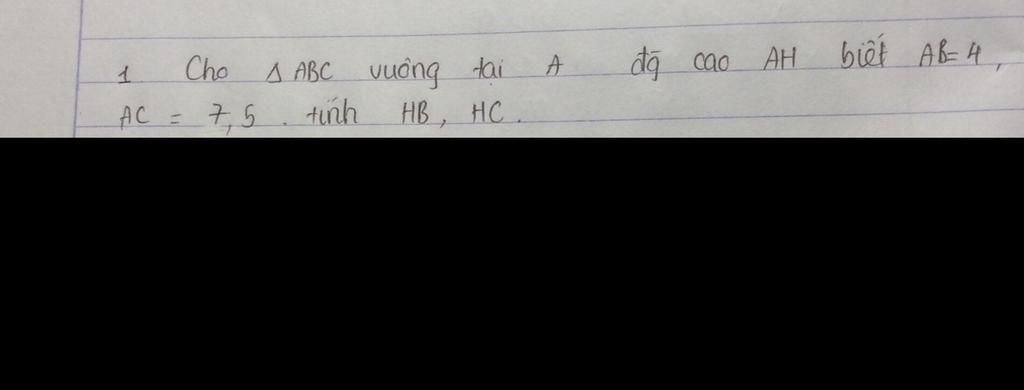 1 Cho Δ ABC vuông tại A đg cao AH biết AB=4,
AC = 7,5. tính HB, HC.